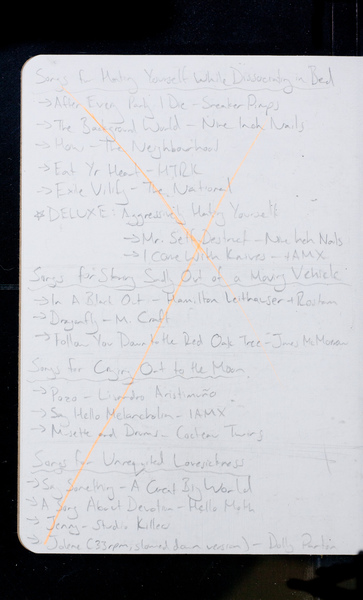 Songs for Hating Yourself While Dissociating in Bed
→ After Every Party I Die - Sneaker Pimps
→ The Background World - Nine Inch Nails
→ How - The Neighbourhood
→ Eat Yr Heart - HTRK
→ Exile Vilify - The National
* DELUXE: Aggressively Hating Yourself
→ Mr. Self Destruct - Nine Inch Nails
→ I Come With Knives - IAMX
Songs for Staring Sadly Out of a Moving Vehicle
→ In A Black Out - Hamilton Leithauser + Rostam
→ Dragonfly - M. Craft
→ Follow You Down to the Red Oak Tree - James McMorrow
Songs for Crying Out to the Moon
→ Pozo - Lisandro Aristimuño
→ Say Hello Melancholia - IAMX
→ Musette and Drums - Cocteau Twins
Songs for Unrequited Lovesickness
→ Say Something - A Great Big World
→ A Song About Devotion - Hello Moth
→ Jenny - Studio Killers
→ Jolene (33rpm, slowed down version) - Dolly Parton